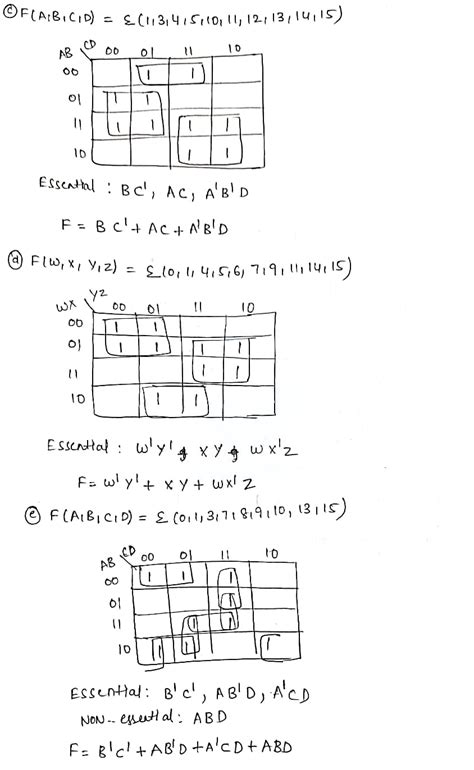 ⓒ F(A,B,C,D) = Σ(1,3,4,5,10,11,12,13,14,15)
AB CD 00 01 11 10
00 1 1
01 1 1
11 1 1 1 1
10 1 1
Essential : BC', AC, A'B'D
F = BC' + AC + A'B'D
ⓓ F(W,X,Y,Z) = Σ(0,1,4,5,6,7,9,11,14,15)
WX YZ 00 01 11 10
00 1 1
01 1 1 1 1
11 1 1
10 1 1
Essential : W'Y', XY, WX'Z
F = W'Y' + XY + WX'Z
ⓔ F(A,B,C,D) = Σ(0,1,3,7,8,9,10,13,15)
AB CD 00 01 11 10
00 1 1 1
01 1
11 1 1
10 1 1 1
Essential: B'C', AB'D, A'CD
NON-essential: ABD
F = B'C' + AB'D + A'CD + ABD